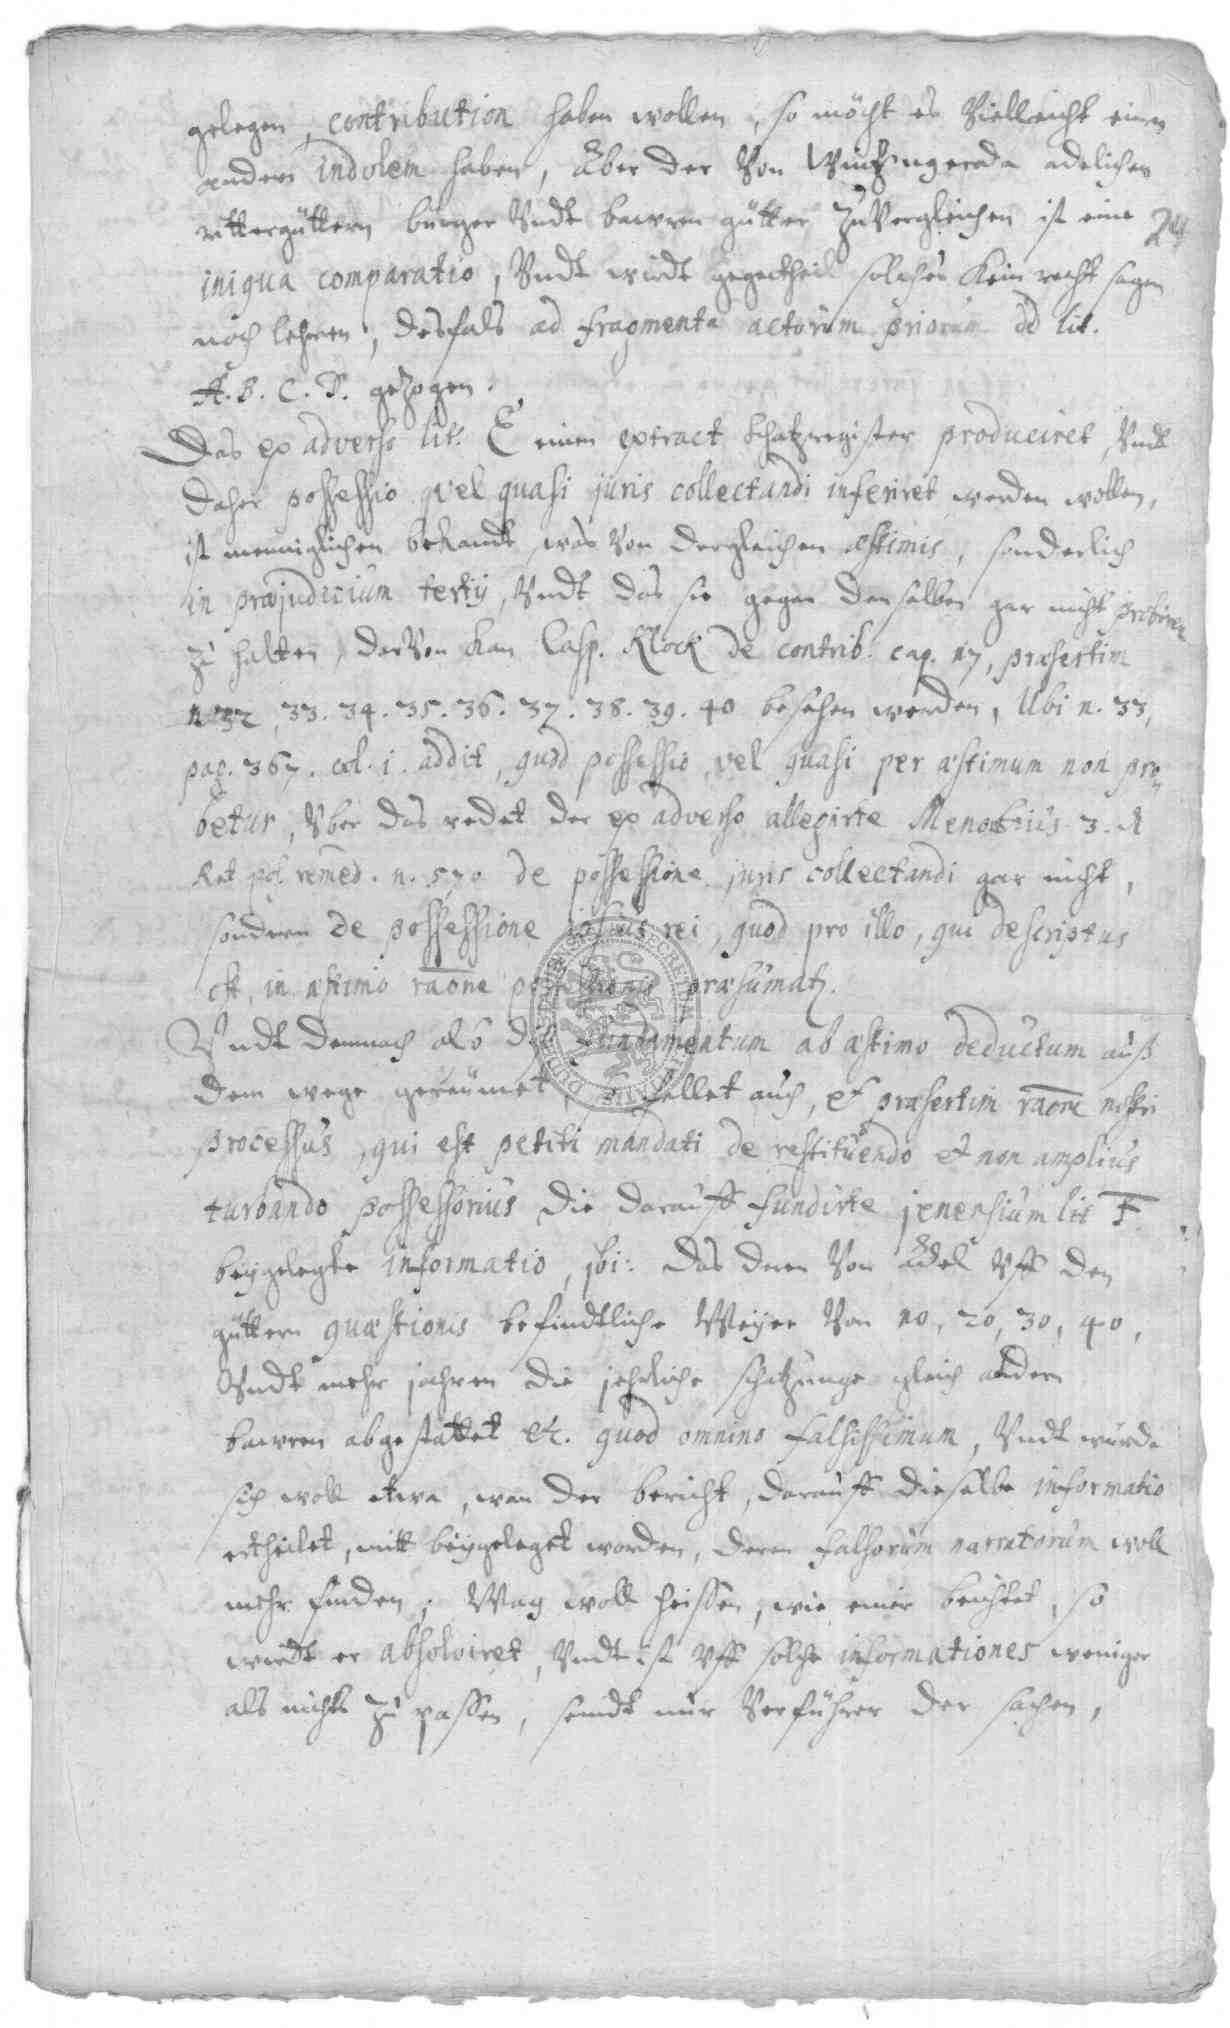 gelegen, contribution haben wollen, so möcht es Vielleicht einen
andern indolem haben, Aber der Von Wintzingeroda adelichen
rittergüttern bürger Undt bawren gütter zuVergleichen ist eine
24
iniqua comparatio, Undt wirdt gegentheil solches Kein recht sagen
noch lehren, desfals ad fragmenta actorum priorum de lit.
A. B. C. D. gezogen.
Das ex adverso lit. E einen extract schatzregister produciret, Undt
daher possessio vel quasi juris collectandi inferiret werden wollen,
ist menniglichen bekandt, was Von dergleichen æstimis, sonderlich
in præjudicium tertij, Undt das sie gegen denselben gar nicht probiren
zu halten, darVon kan Casp. Klock de contrib. cap. 17, præsertim
n. 32, 33. 34. 35. 36. 37. 38. 39. 40 besehen werden, Ubi n. 33,
pag. 367. col. 1. addit, quod possessio, vel quasi per æstimum non pro-
betur, Uber das redet der ex adverso allegirte Menochius 3. A
Ret. pos. remed. n. 570 de possessione juris collectandi gar nicht,
sondern de possessione ipsius rei, quod pro illo, qui descriptus
est, in æstimo raone possessionis præsumatr.
Undt demnach also diß fundamentum ab æstimo deductum auß
dem wege geräumet, so fellet auch, et præsertim raone nostri
processus, qui est petiti mandati de restituendo et non amplius
turbando possessorius die darauff fundirte jenensium lit F
beygelegte informatio, ibi: das deren Von Adel Uff den
güttern quæstionis befindtliche Meyer Von 10, 20, 30, 40,
Undt mehr jahren die jehrliche schatzunge gleich andern
bawren abgestattet etc. quod omnino falsissimum, Undt würde
sich woll etwa, wan der bericht, darauff dieselbe informatio
ertheilet, mitt beygeleget worden, deren falsorum narratorum woll
mehr finden, Mag woll heissen, wie einer beichtet, so
wirdt er absolviret, Undt ist Uff solche informationes weniger
als nichts zu passen, seindt nur Verführer der sachen,